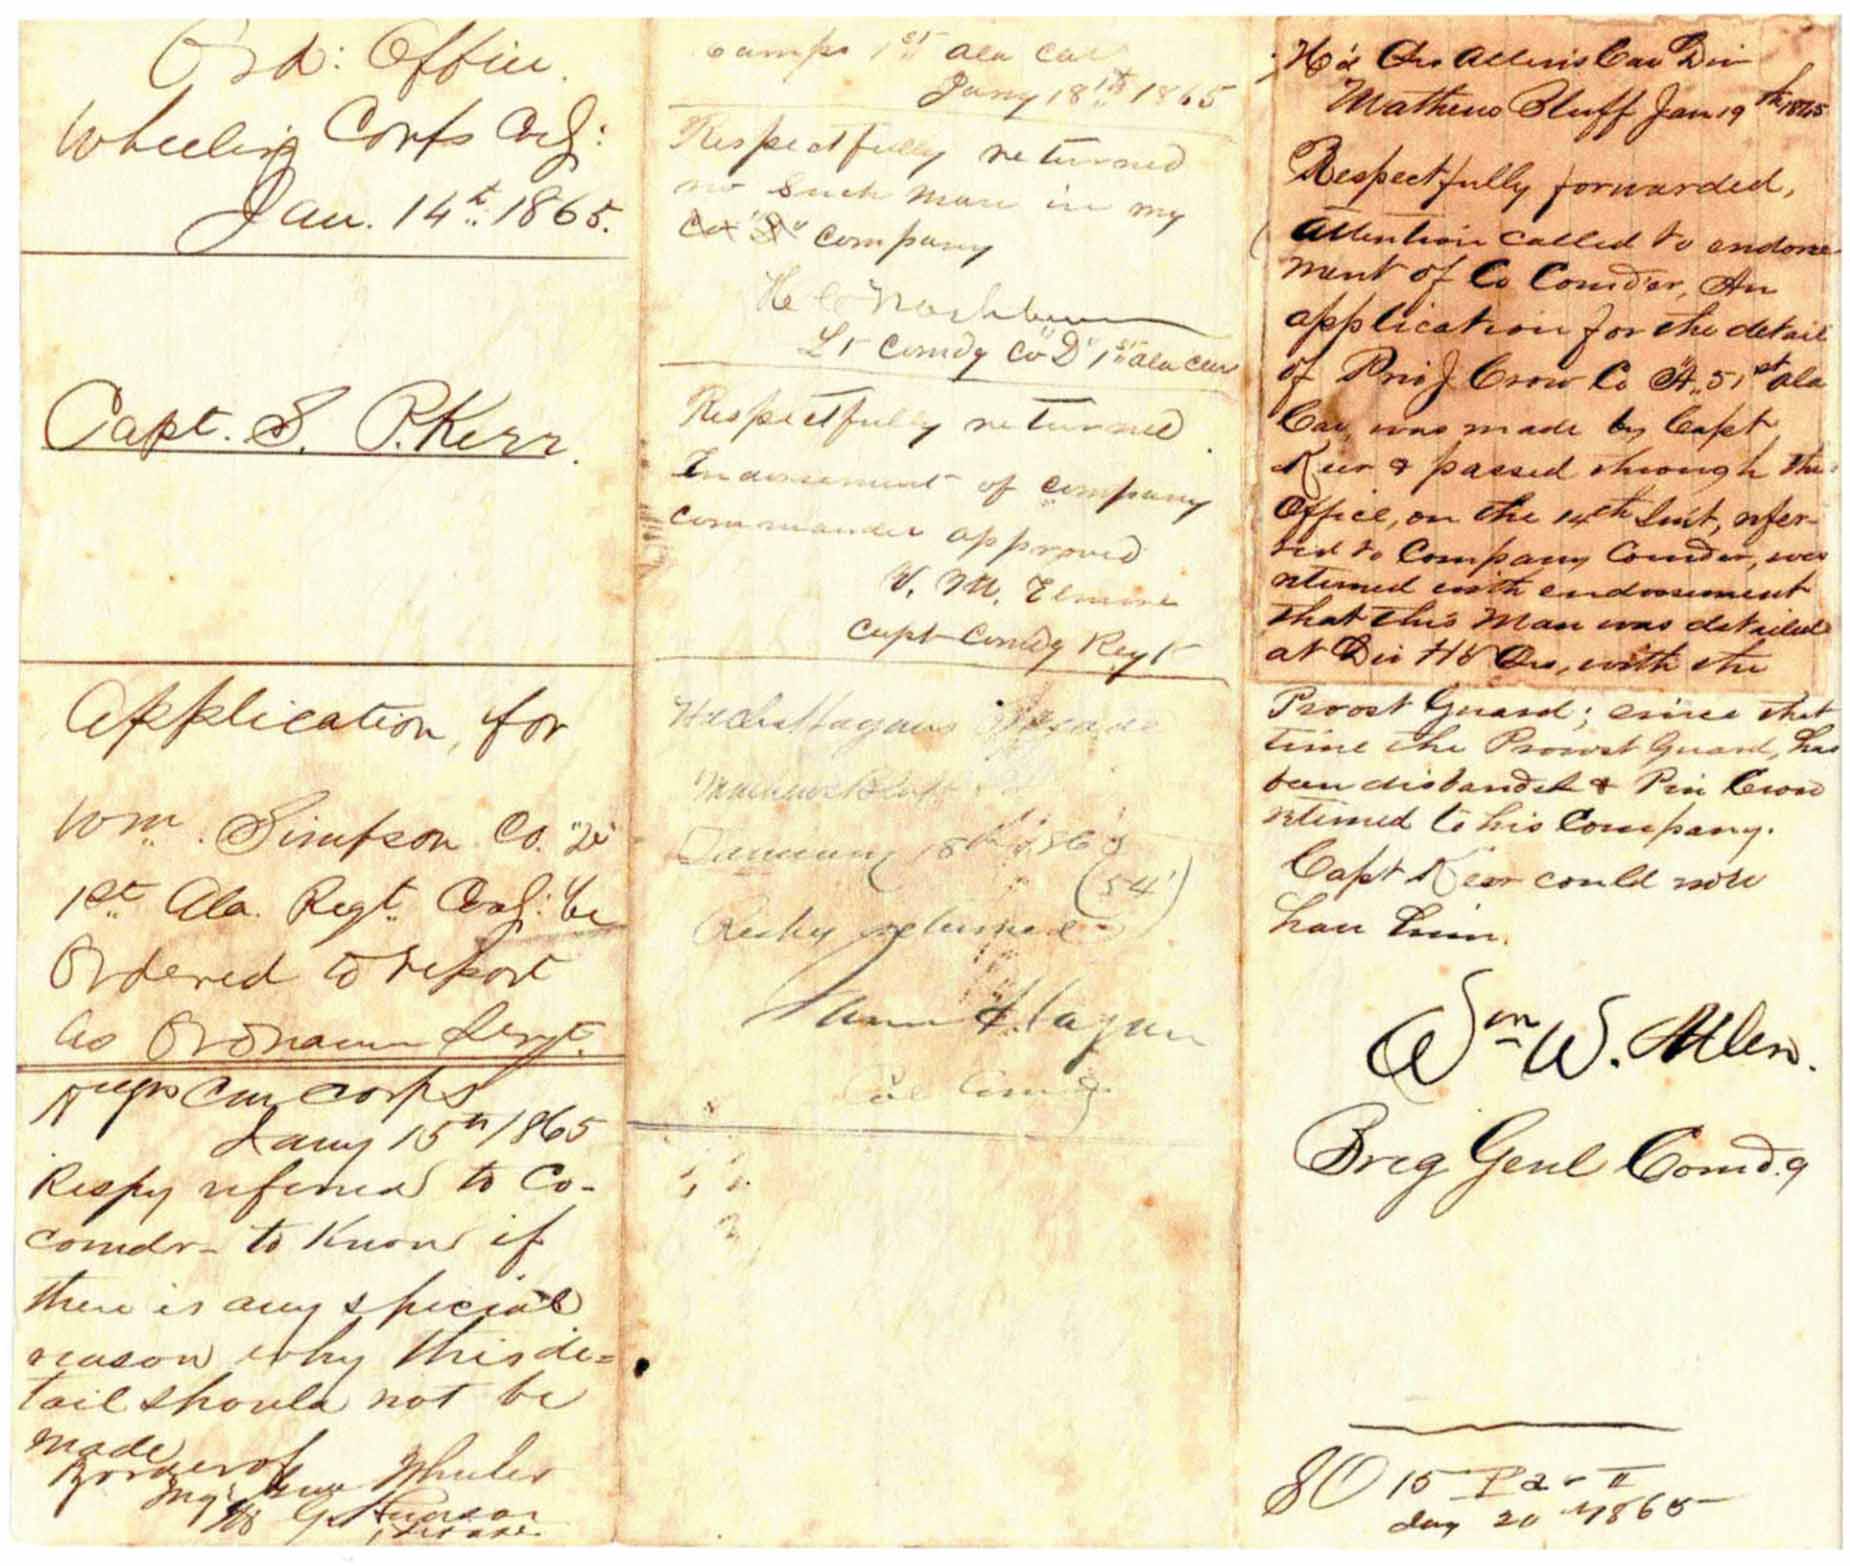 Ord: Office.
Wheeler's Corps Cav:
Jan. 14th 1865.
Capt. S. P. Kerr.
Application for
Wm. Simpson Co. "D"
1st Ala. Regt. Cav: be
Ordered to report
as Ordnance Sergt.
Hdqrs Cav corps
Jany 15th 1865
Respy referred to Co-
comdr- to know if
there is any special
reason why this de=
tail should not be
made
By order of
Maj: Genl Wheeler
Camp 1st Ala Cav
Jany 18th 1865
Respectfully returned
no such man in my
Co "D" company
H C Washburn
Lt Comdg Co "D" 1st Ala Cav
Respectfully returned
Endorsement of company
commander approved
V. M. Elmore
Capt Comdg Regt
Hd Qrs Hagans Brigade
Mathews Bluff
January 18th 1865
(54)
Resky returned
James Hagan
Col Comdg
Hd Qrs Allens Cav Div
Mathews Bluff Jan 19th 1865
Respectfully forwarded,
Attention called to endorse-
ment of Co Comd'er, An
application for the detail
of Priv J Crow Co "A" 51st Ala
Cav, was made by Capt
Kerr & passed through this
Office, on the 14th Inst, refer-
red to Company Comder, was
returned with endorsement
that this Man was detailed
at Div Hd Qrs, with the
Provost Guard; since that
time the Provost Guard, has
been disbanded & Priv Crow
returned to his Company.
Capt Kerr could now
have him.
Wm W. Allen.
Brig Genl Comd.g
80 15 Par II
Jay 20 1865